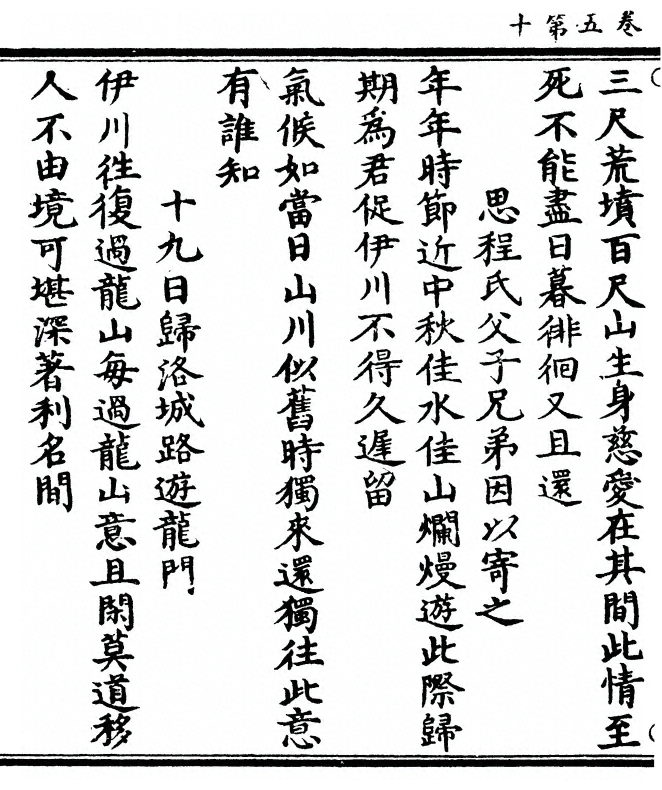 卷五第十
三尺荒墳百尺山生身慈愛在其間此情至
死不能盡日暮徘徊又且還
思程氏父子兄弟因以寄之
年年時節近中秋佳水佳山爛熳遊此際歸
期為君促伊川不得久遲留
氣候如當日山川似舊時獨來還獨往此意
有誰知
十九日歸洛城路遊龍門
伊川徃復過龍山每過龍山意且閑莫道移
人不由境可堪深著利名間